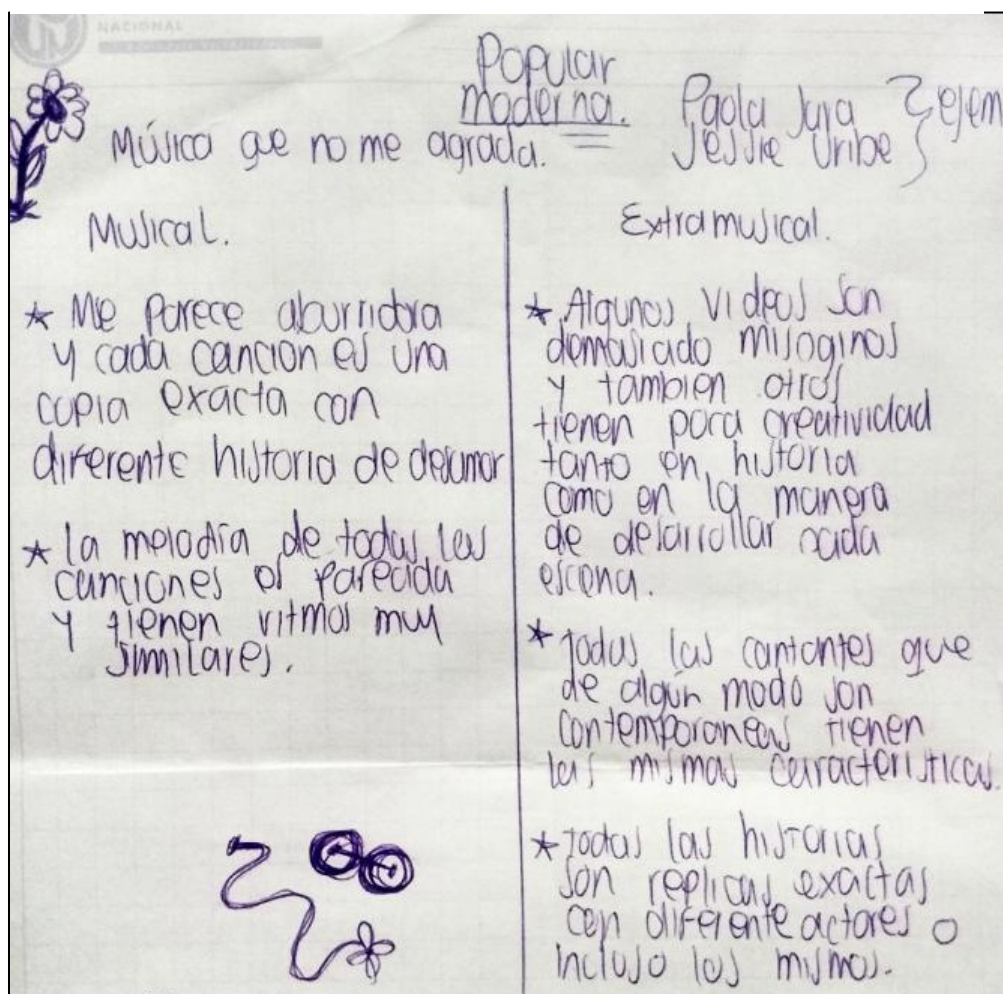 NACIONAL
Popular
moderna.
Paola Jara } ejem
Jessie Uribe
Música que no me agrada.
Musical.
★ Me parece aburridora
y cada cancion es una
copia exacta con
diferente historia de desamor
★ la melodía de todas las
canciones es parecida
y tienen ritmos muy
similares.
Extramusical.
★ Algunos videos son
demasiado misoginos
y tambien otros
tienen poca creatividad
tanto en historia
como en la manera
de desarrollar cada
escena.
★ Todas las cantantes que
de algún modo son
contemporaneas tienen
las mismas caracteristicas.
★ Todas las historias
son replicas exactas
con diferente actores o
incluso los mismos.